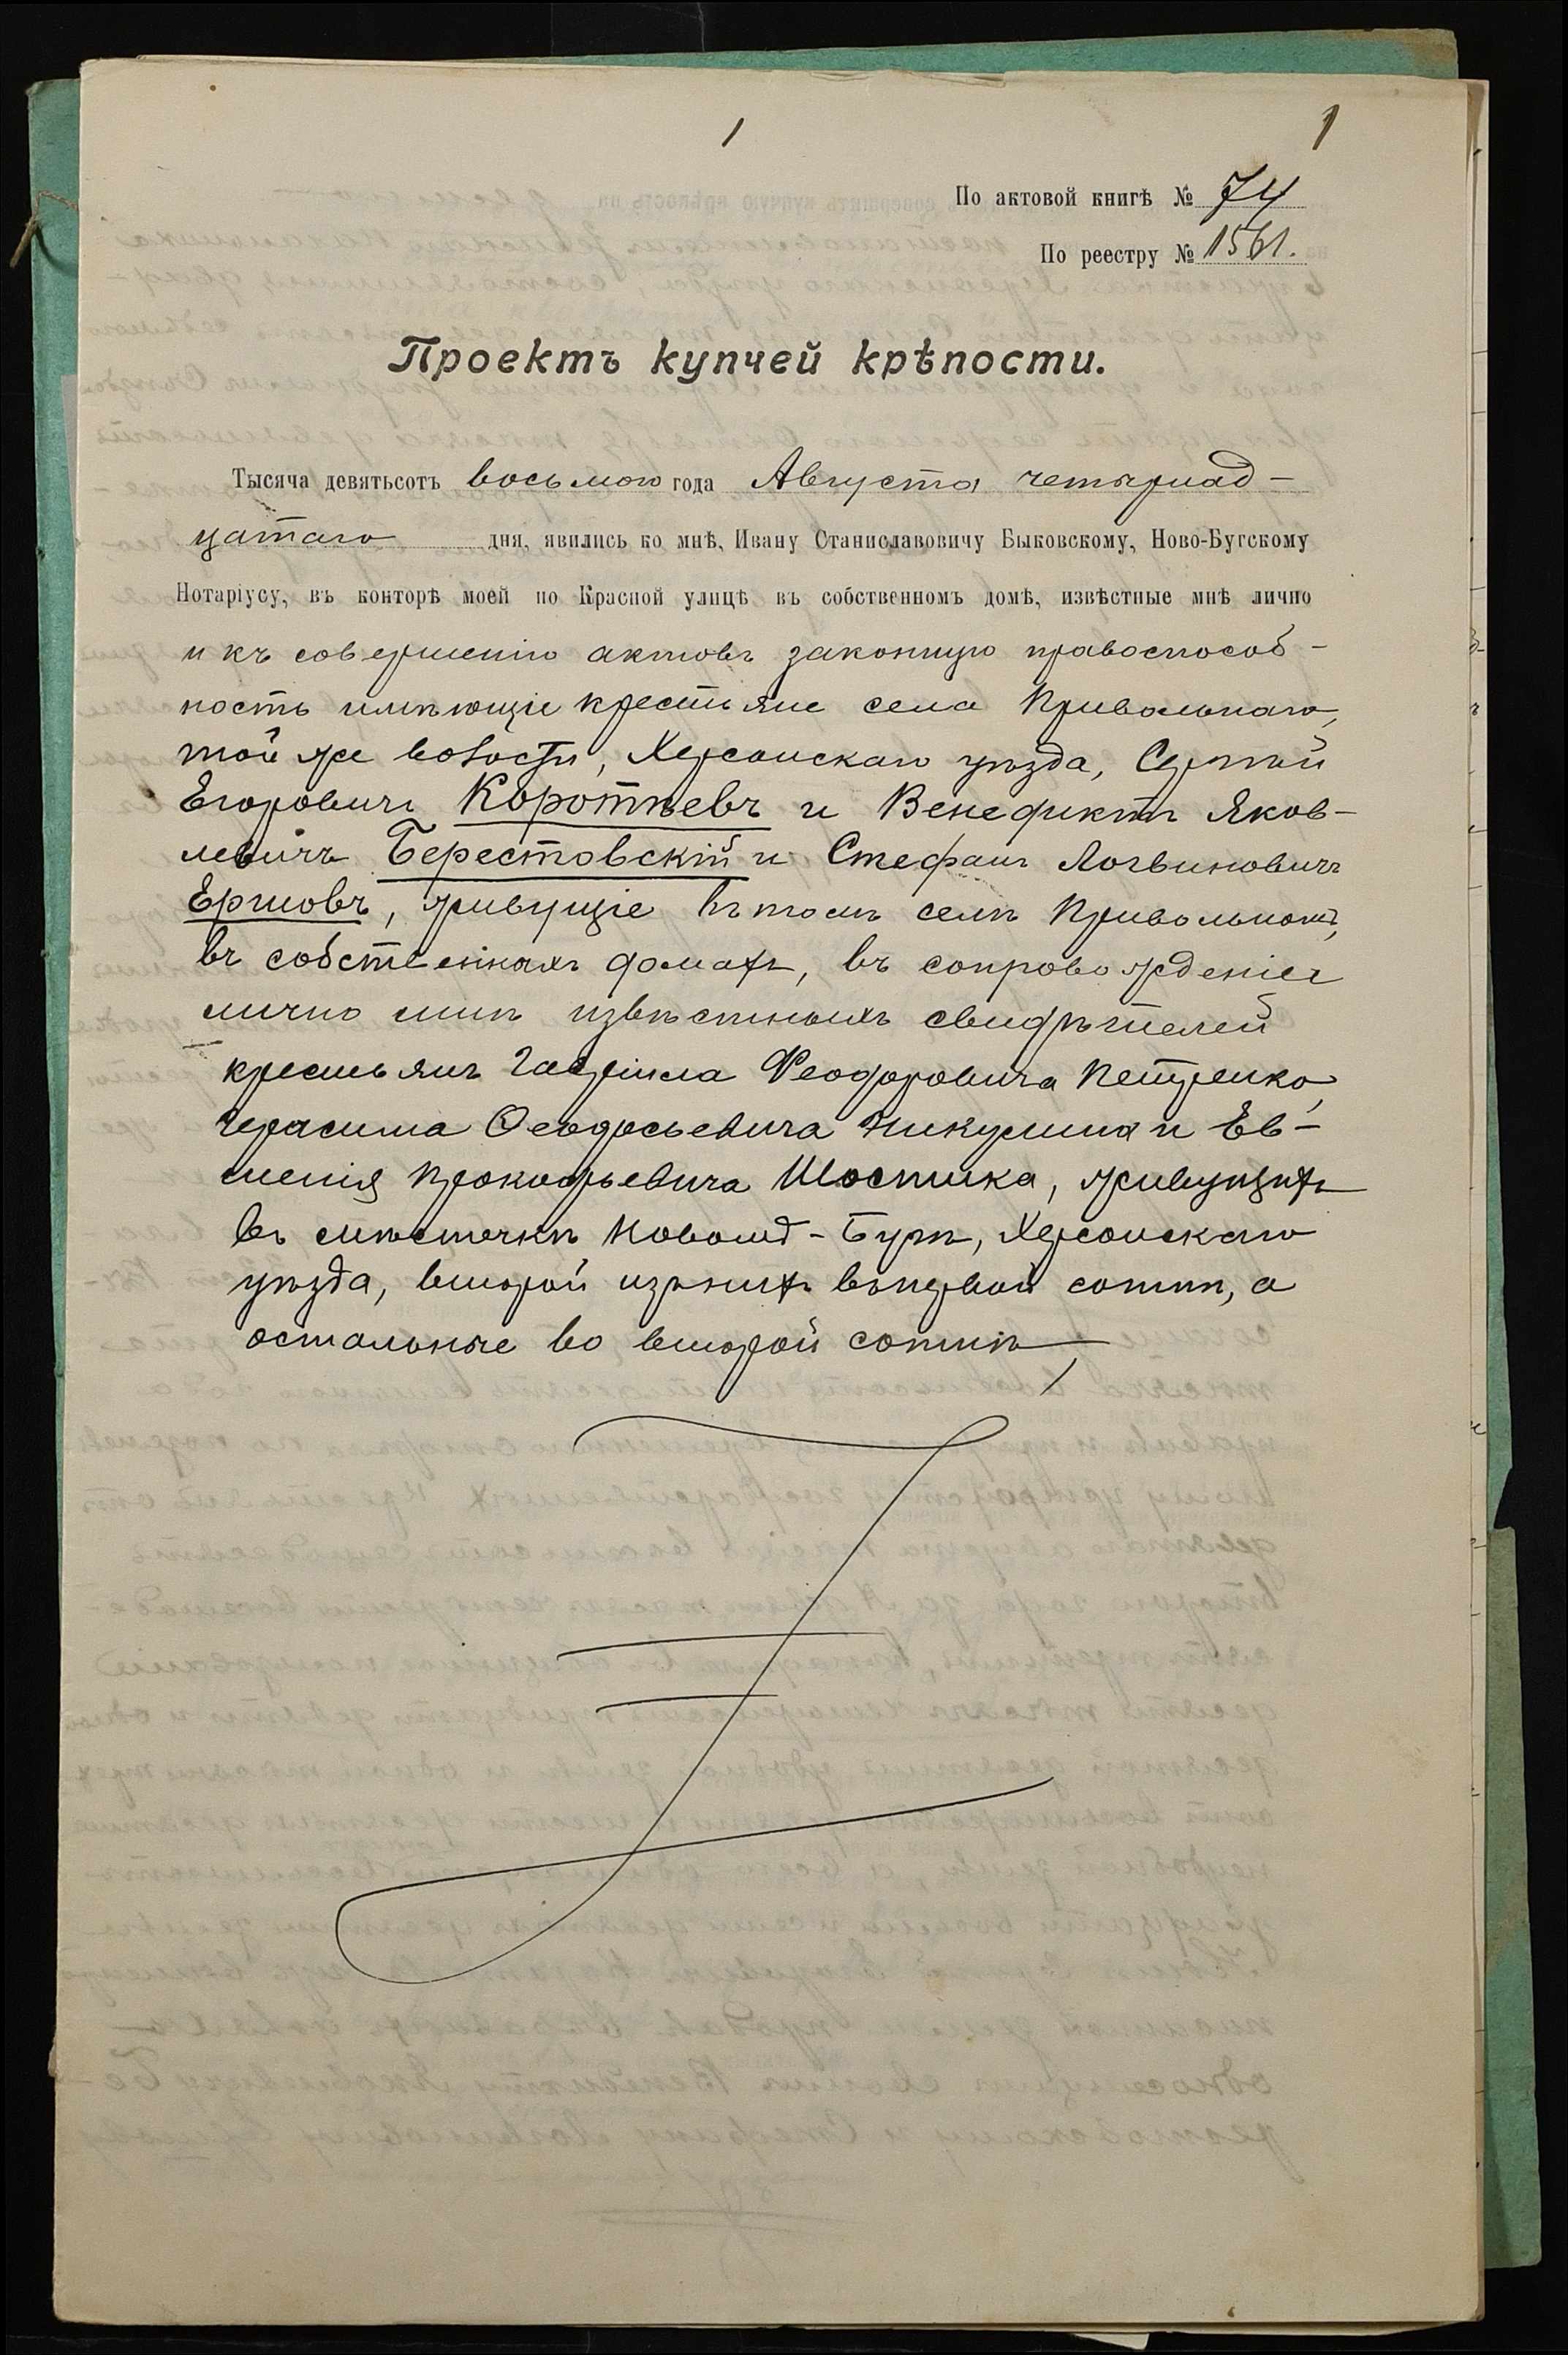 1 1
По актовой книгѣ № 74
По реестру № 1561.
Проектъ купчей крѣпости.
Тысяча девятьсотъ восьмого года Августа четырнад-
цатаго дня, явились ко мнѣ, Ивану Станиславовичу Быковскому, Ново-Бугскому
Нотаріусу, въ конторѣ моей по Красной улицѣ въ собственномъ домѣ, извѣстные мнѣ лично
и къ совершенію актовъ законную правоспособ-
ность имѣющіе крестьяне села Привольнаго,
той же волости, Херсонскаго уѣзда, Сергѣй
Егоровичъ Коротѣевъ и Венедиктъ Яков-
левичъ Берестовскій и Стефанъ Логвиновичъ
Ершовъ, живущіе въ томъ селѣ Привольномъ,
въ собственныхъ домахъ, въ сопровожденіи
лично мнѣ извѣстныхъ свидѣтелей
крестьянъ Гавріила Феодоровича Петренко,
Герасима Феодосьевича Никулина и Ев-
менія Прокофьевича Шостика, живущихъ
въ мѣстечкѣ Новомъ-Бугѣ, Херсонскаго
уѣзда, второй изъ нихъ въ первой сотнѣ, а
остальные во второй сотнѣ